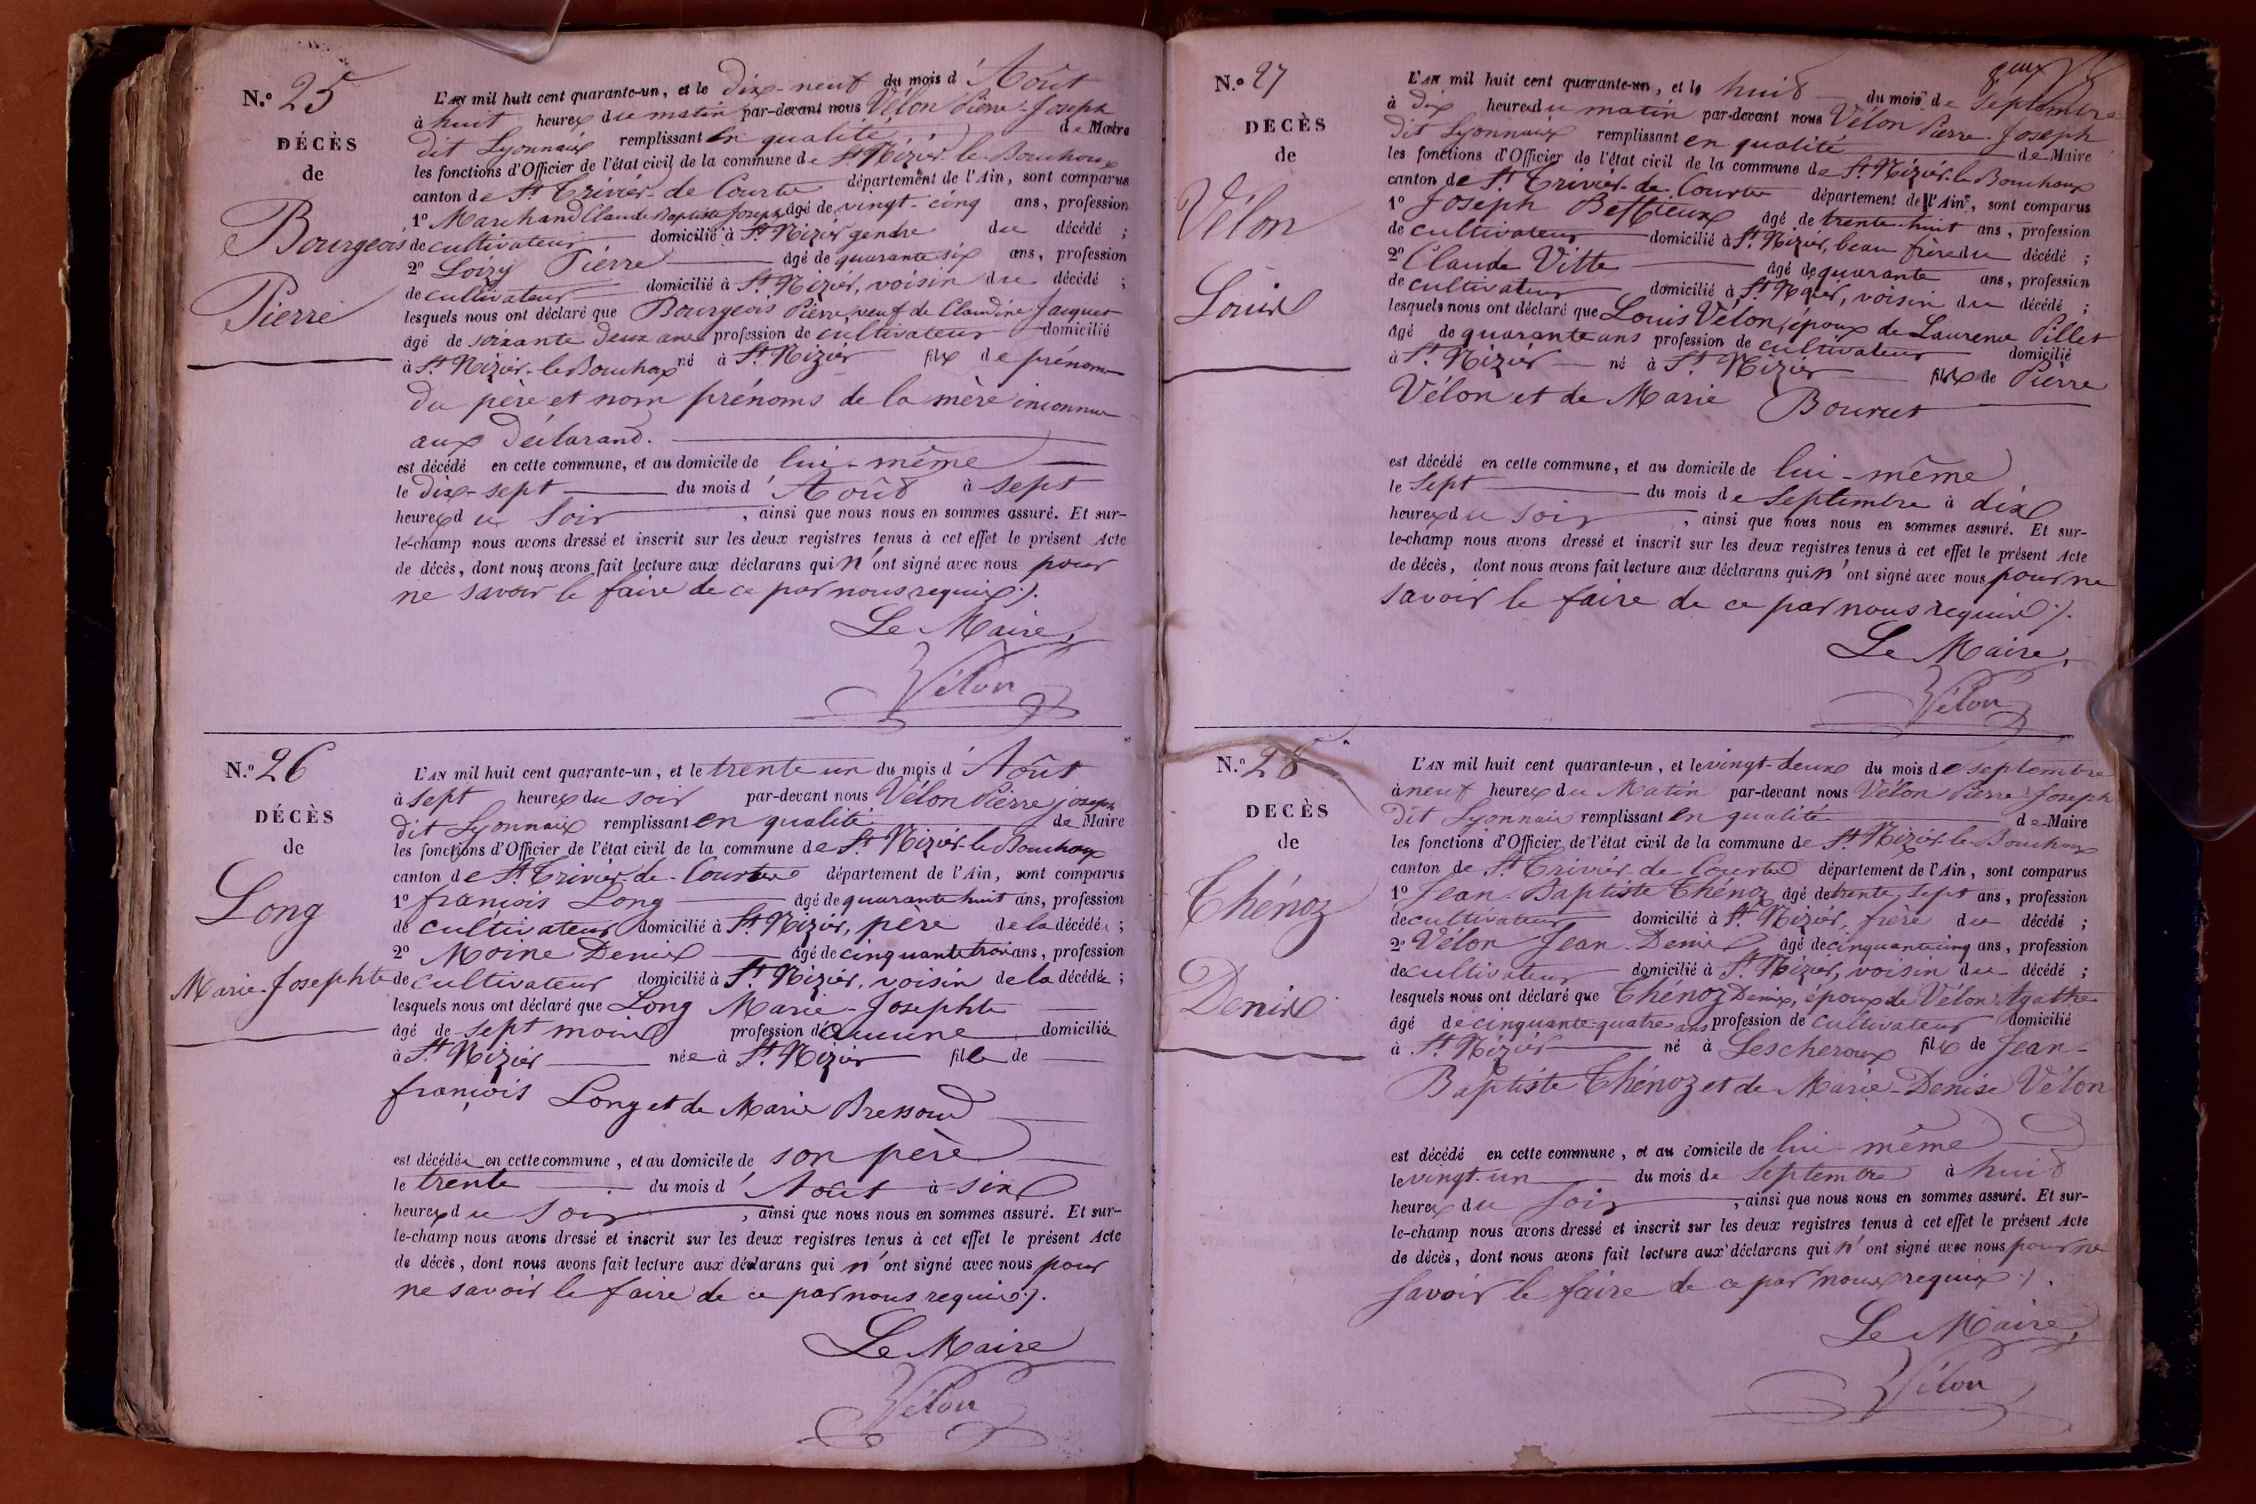 N.º 25
DÉCÈS
de
Bourgeois
Pierre
L'AN mil huit cent quarante-un, et le dix-neuf du mois d'Août
à huit heures du matin par-devant nous Vélon Pierre-Joseph
dit Lyonnais remplissant en qualité de Maire
les fonctions d'Officier de l'état civil de la commune de St Nizier-le-Bouchoux
canton de St Trivier-de-Courtes département de l'Ain, sont comparus
1º Marchand Claude Baptiste Joseph âgé de vingt-cinq ans, profession
de cultivateur domicilié à St Nizier gendre du décédé ;
2º Loizy Pierre âgé de quarante six ans, profession
de cultivateur domicilié à St Nizier, voisin du décédé ;
lesquels nous ont déclaré que Bourgeois Pierre, veuf de Claudine Jacquet
âgé de soixante deux ans profession de cultivateur domicilié
à St Nizier-le-Bouchoux né à St Nizier fils de prénom
du père et nom prénoms de la mère inconnus
aux déclarans.
est décédé en cette commune, et au domicile de lui-même
le dix-sept du mois d'Août à sept
heures du soir, ainsi que nous nous en sommes assuré. Et sur-
le-champ nous avons dressé et inscrit sur les deux registres tenus à cet effet le présent Acte
de décès, dont nous avons fait lecture aux déclarans qui n'ont signé avec nous pour
ne savoir le faire de ce par nous requis ./.
Le Maire,
Vélon
N.º 26
DÉCÈS
de
Long
Marie-Josephte
L'AN mil huit cent quarante-un, et le trente un du mois d'Août
à sept heures du soir par-devant nous Vélon Pierre joseph
dit Lyonnais remplissant en qualité de Maire
les fonctions d'Officier de l'état civil de la commune de St Nizier-le-Bouchoux
canton de St Trivier-de-Courtes département de l'Ain, sont comparus
1º françois Long âgé de quarante huit ans, profession
de cultivateur domicilié à St Nizier, père de la décédée ;
2º Moine Denis âgé de cinquante trois ans, profession
de cultivateur domicilié à St Nizier, voisin de la décédée ;
lesquels nous ont déclaré que Long Marie-Josephte
âgé de sept mois profession d'aucune domiciliée
à St Nizier née à St Nizier fille de
françois Long et de Marie Bressoud
est décédée en cette commune, et au domicile de son père
le trente du mois d'Août à six
heures du soir, ainsi que nous nous en sommes assuré. Et sur-
le-champ nous avons dressé et inscrit sur les deux registres tenus à cet effet le présent Acte
de décès, dont nous avons fait lecture aux déclarans qui n'ont signé avec nous pour
ne savoir le faire de ce par nous requis ./.
Le Maire
Vélon
N.º 27
DECÈS
de
Vélon
Louis
L'AN mil huit cent quarante-un, et le huit du mois de septembre
à dix heures du matin par-devant nous Vélon Pierre-Joseph
dit Lyonnais remplissant en qualité de Maire
les fonctions d'Officier de l'état civil de la commune de St Nizier-le-Bouchoux
canton de St Trivier-de-Courtes département de l'Ain, sont comparus
1º Joseph Beffieux âgé de trente-huit ans, profession
de cultivateur domicilié à St Nizier, beau frère du décédé ;
2º Claude Vitte âgé de quarante ans, profession
de cultivateur domicilié à St Nizier, voisin du décédé ;
lesquels nous ont déclaré que Louis Vélon, époux de Laurence Pillet
âgé de quarante ans profession de cultivateur domicilié
à St Nizier né à St Nizier fils de Pierre
Vélon et de Marie Bourcet
est décédé en cette commune, et au domicile de lui-même
le sept du mois de septembre à dix
heures du soir, ainsi que nous nous en sommes assuré. Et sur-
le-champ nous avons dressé et inscrit sur les deux registres tenus à cet effet le présent Acte
de décès, dont nous avons fait lecture aux déclarans qui n'ont signé avec nous pour ne
savoir le faire de ce par nous requis ./.
Le Maire,
Vélon
N.º 28
DECÈS
de
Thénoz
Denis
L'AN mil huit cent quarante-un, et le vingt-deux du mois de septembre
à neuf heures du Matin par-devant nous Vélon Pierre Joseph
dit Lyonnais remplissant en qualité de Maire
les fonctions d'Officier de l'état civil de la commune de St Nizier-le-Bouchoux
canton de St Trivier-de-Courtes département de l'Ain, sont comparus
1º Jean-Baptiste Thénoz âgé de trente-sept ans, profession
de cultivateur domicilié à St Nizier, frère du décédé ;
2º Vélon Jean-Denis âgé de cinquante cinq ans, profession
de cultivateur domicilié à St Nizier, voisin du décédé ;
lesquels nous ont déclaré que Thénoz Denis, époux de Vélon Agathe
âgé de cinquante-quatre ans profession de cultivateur domicilié
à St Nizier né à Lescheroux fils de Jean-
Baptiste Thénoz et de Marie-Denise Vélon
est décédé en cette commune, et au domicile de lui-même
le vingt-un du mois de septembre à huit
heures du soir, ainsi que nous nous en sommes assuré. Et sur-
le-champ nous avons dressé et inscrit sur les deux registres tenus à cet effet le présent Acte
de décès, dont nous avons fait lecture aux déclarans qui n'ont signé avec nous pour ne
savoir le faire de ce par nous requis ./.
Le Maire,
Vélon